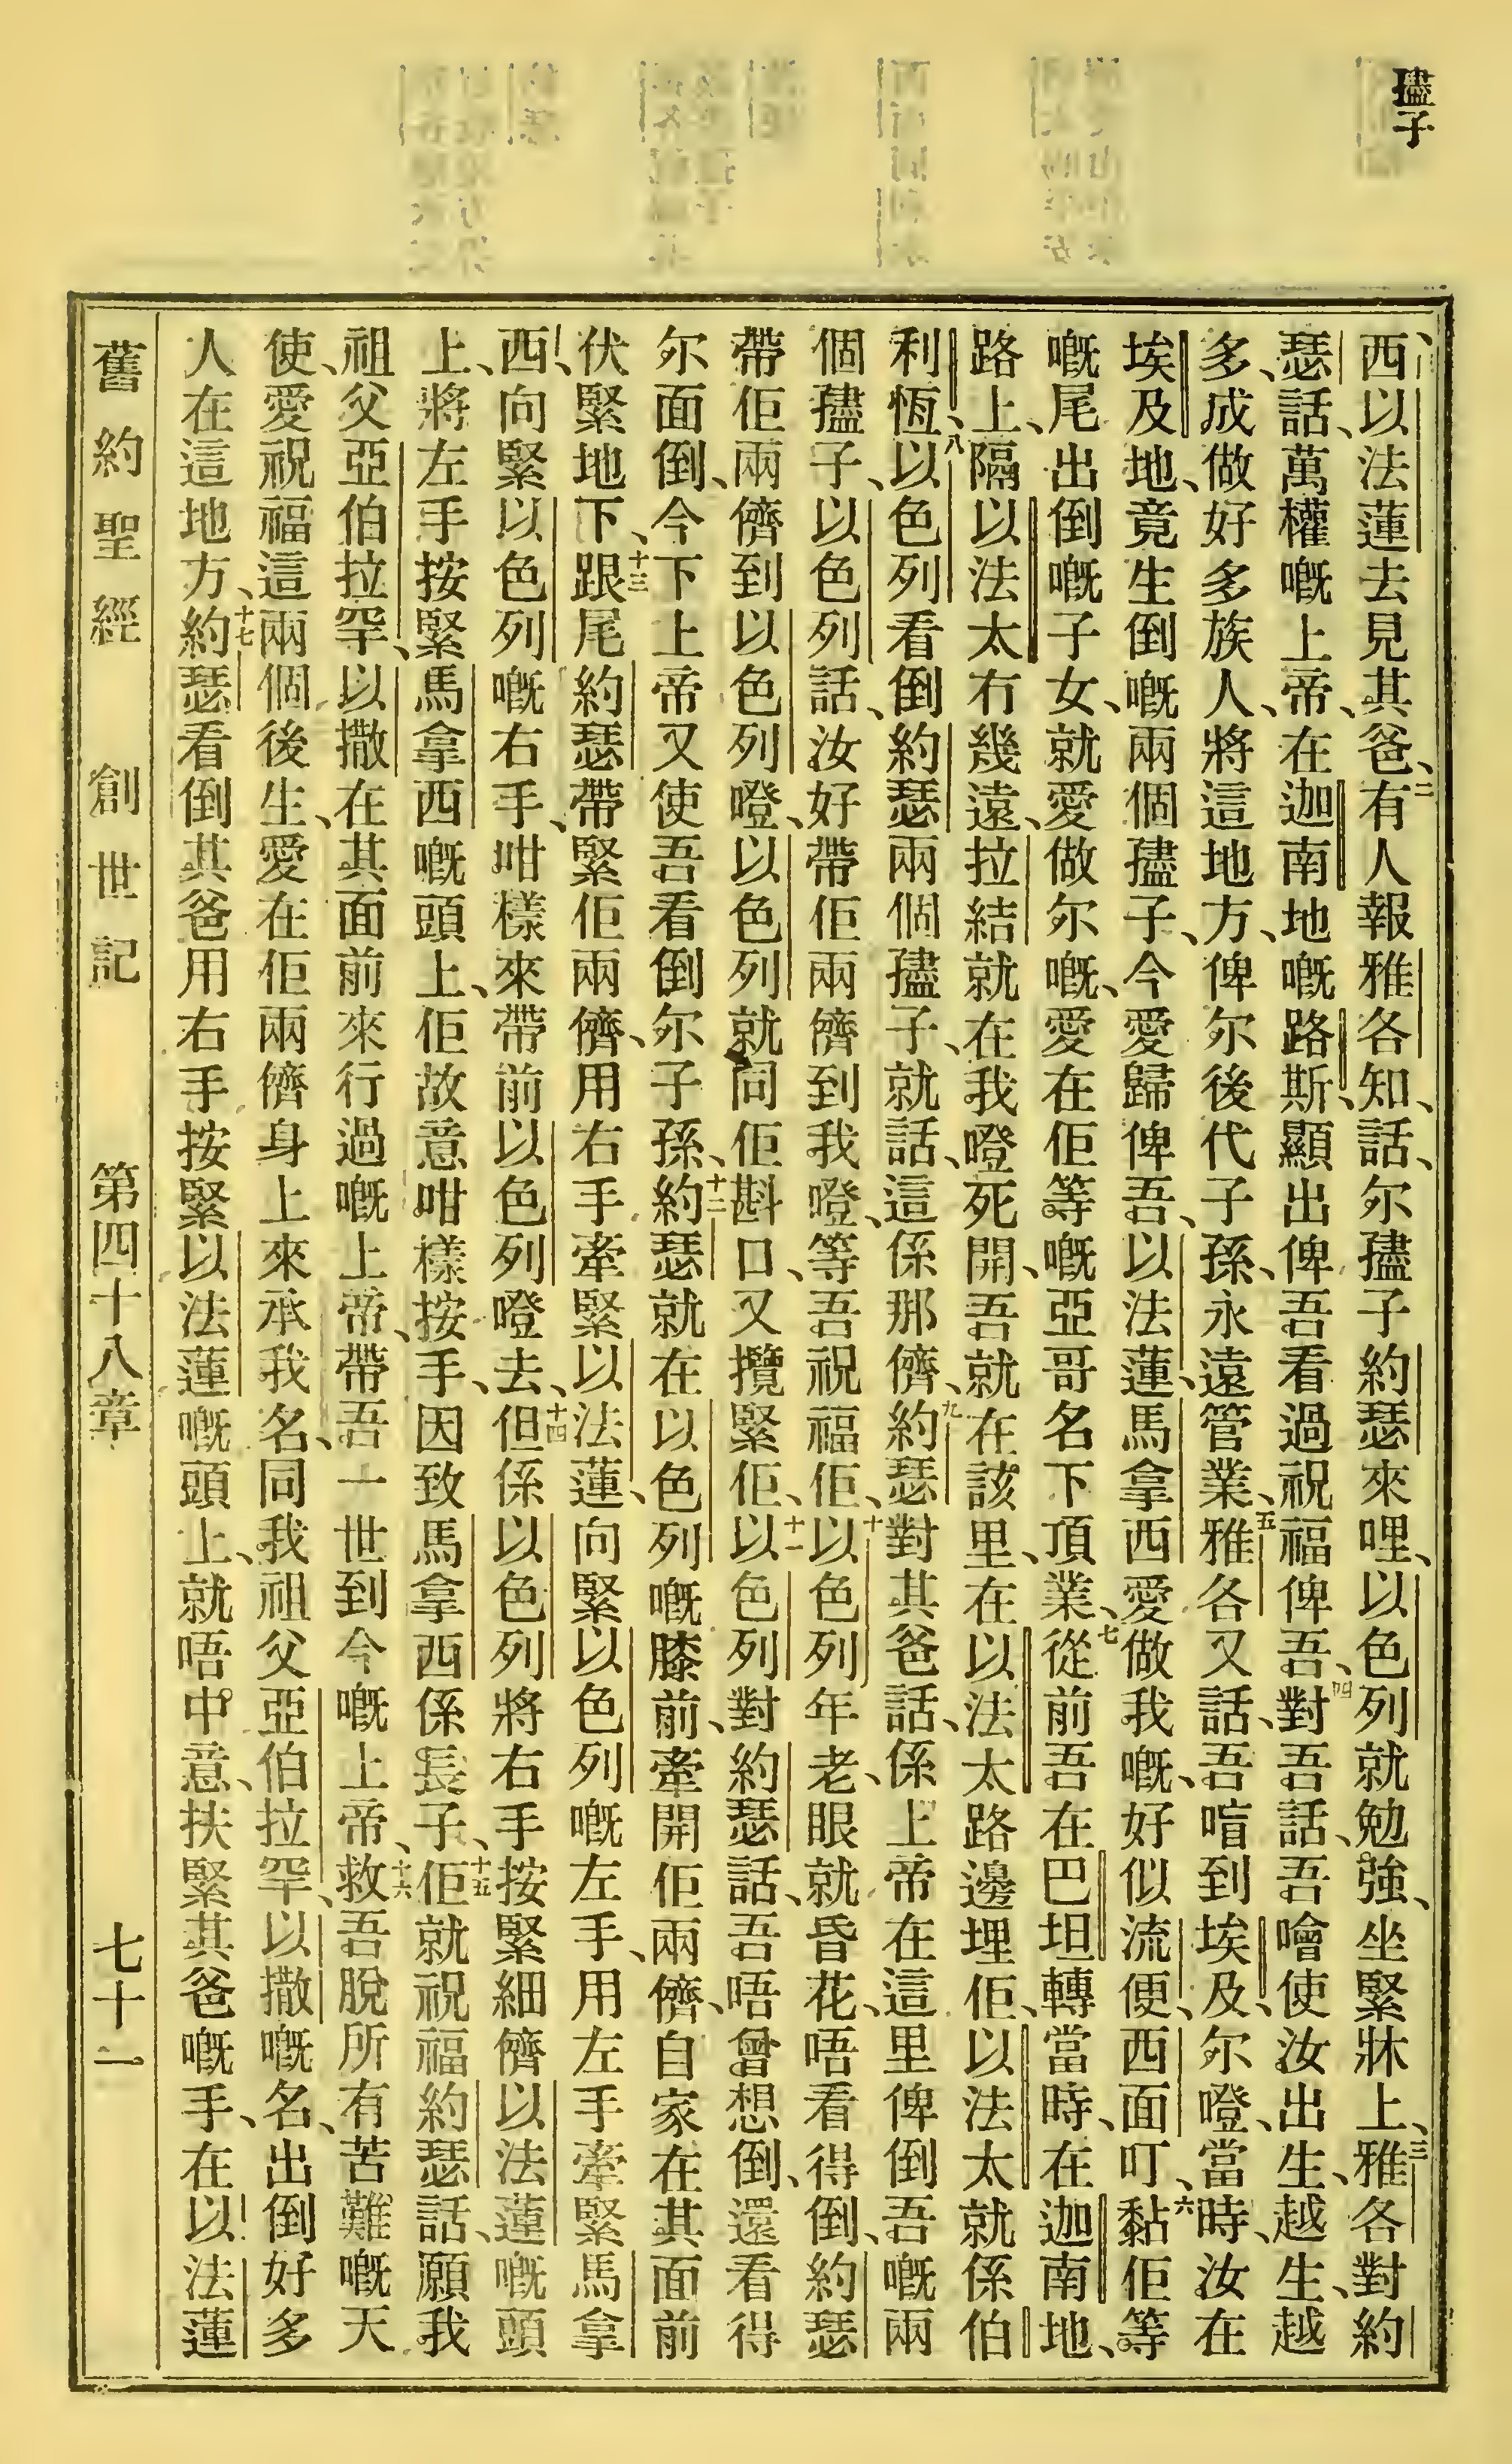 孻子
西、以法蓮去見其爸、二有人報雅各知、話、尔孻子約瑟來哩、以色列就勉強、坐緊牀上、三雅各對約
瑟話、萬權嘅上帝、在迦南地嘅路斯、顯出俾吾看過祝福俾吾、四對吾話、吾噲使汝出生、越生、越
多、成做好多族人、將這地方、俾尔後代子孫、永遠管業、五雅各又話、吾㫾到埃及、尔嶝、當時、汝在
埃及地、竟生倒嘅兩個孻子、今愛歸俾吾、以法蓮、馬拿西愛做我嘅、好似流便、西面叮、六黏佢等
嘅尾出倒嘅子女、就愛做尔嘅、愛在佢等嘅亞哥名下頂業、七從前吾在巴坦轉當時、在迦南地、
路上、隔以法太冇幾遠、拉結就在我嶝死開、吾就在該里、在以法太路邊埋佢、以法太就係伯
利恆、八以色列看倒約瑟兩個孻子、就話、這係那儕、九約瑟對其爸話、係上帝在這里俾倒吾嘅兩
個孻子、以色列話、汝好帶佢兩儕到我嶝、等吾祝福佢、十以色列年老、眼就昏花、唔看得倒、約瑟
帶佢兩儕到以色列嶝、以色列就同佢斟口、又攬緊佢、十一以色列對約瑟話、吾唔曾想倒、還看得
尔面倒、今下上帝又使吾看倒尔子孫、十二約瑟就在以色列嘅膝前、牽開佢兩儕、自家在其面前
伏緊地下、十三跟尾約瑟帶緊佢兩儕、用右手牽緊以法蓮、向緊以色列嘅左手、用左手牽緊馬拿
西、向緊以色列嘅右手、咁樣來帶前以色列嶝去、十四但係以色列將右手按緊細儕以法蓮嘅頭
上、將左手按緊馬拿西嘅頭上、佢故意咁樣按手、因致馬拿西係長子、十五佢就祝福約瑟話、願我
祖父亞伯拉罕、以撒在其面前來行過嘅上帝、帶吾一世到今嘅上帝、十六救吾脫所有苦難嘅天
使、愛祝福這兩個後生、愛在佢兩儕身上來承我名、同我祖父亞伯拉罕、以撒嘅名、出倒好多
人在這地方、十七約瑟看倒其爸用右手按緊以法蓮嘅頭上、就唔中意、扶緊其爸嘅手、在以法蓮
舊約聖經 創世記 第四十八章 七十一